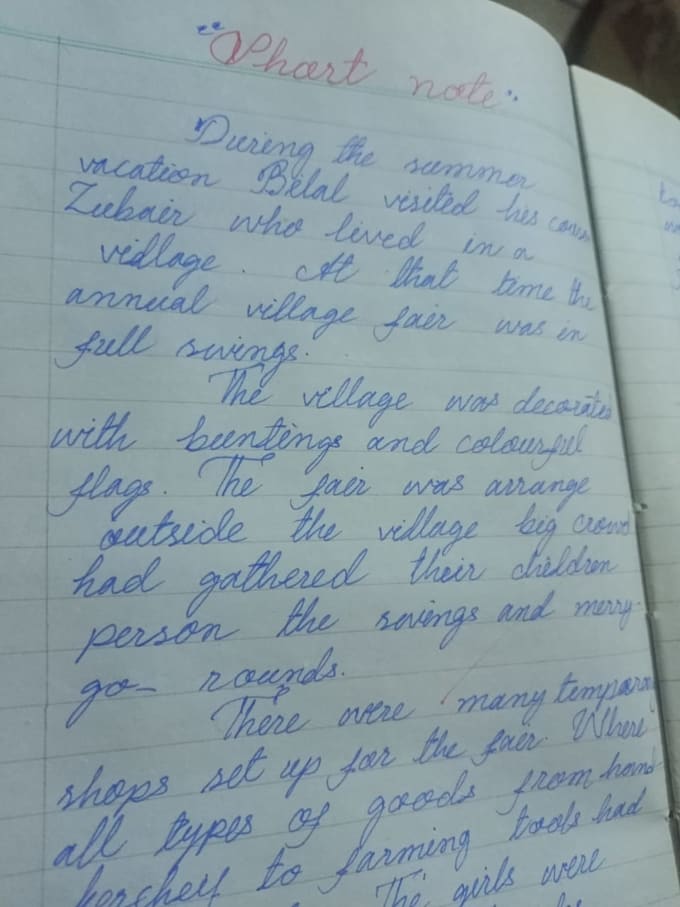 "Short note"
During the summer
vacation Belal visited his
Zubair who lived in a
vidlage. At that time the
annual village fair was in
full swings.
The village was decorated
with buntings and colourful
flags. The fair was arrange
outside the village big crowd
had gathered their children
person the swings and merry-
go- rounds.
There were many temporary
shops set up for the fair. Where
all types of goods from hand
kerchey to farming tools had
The girls were